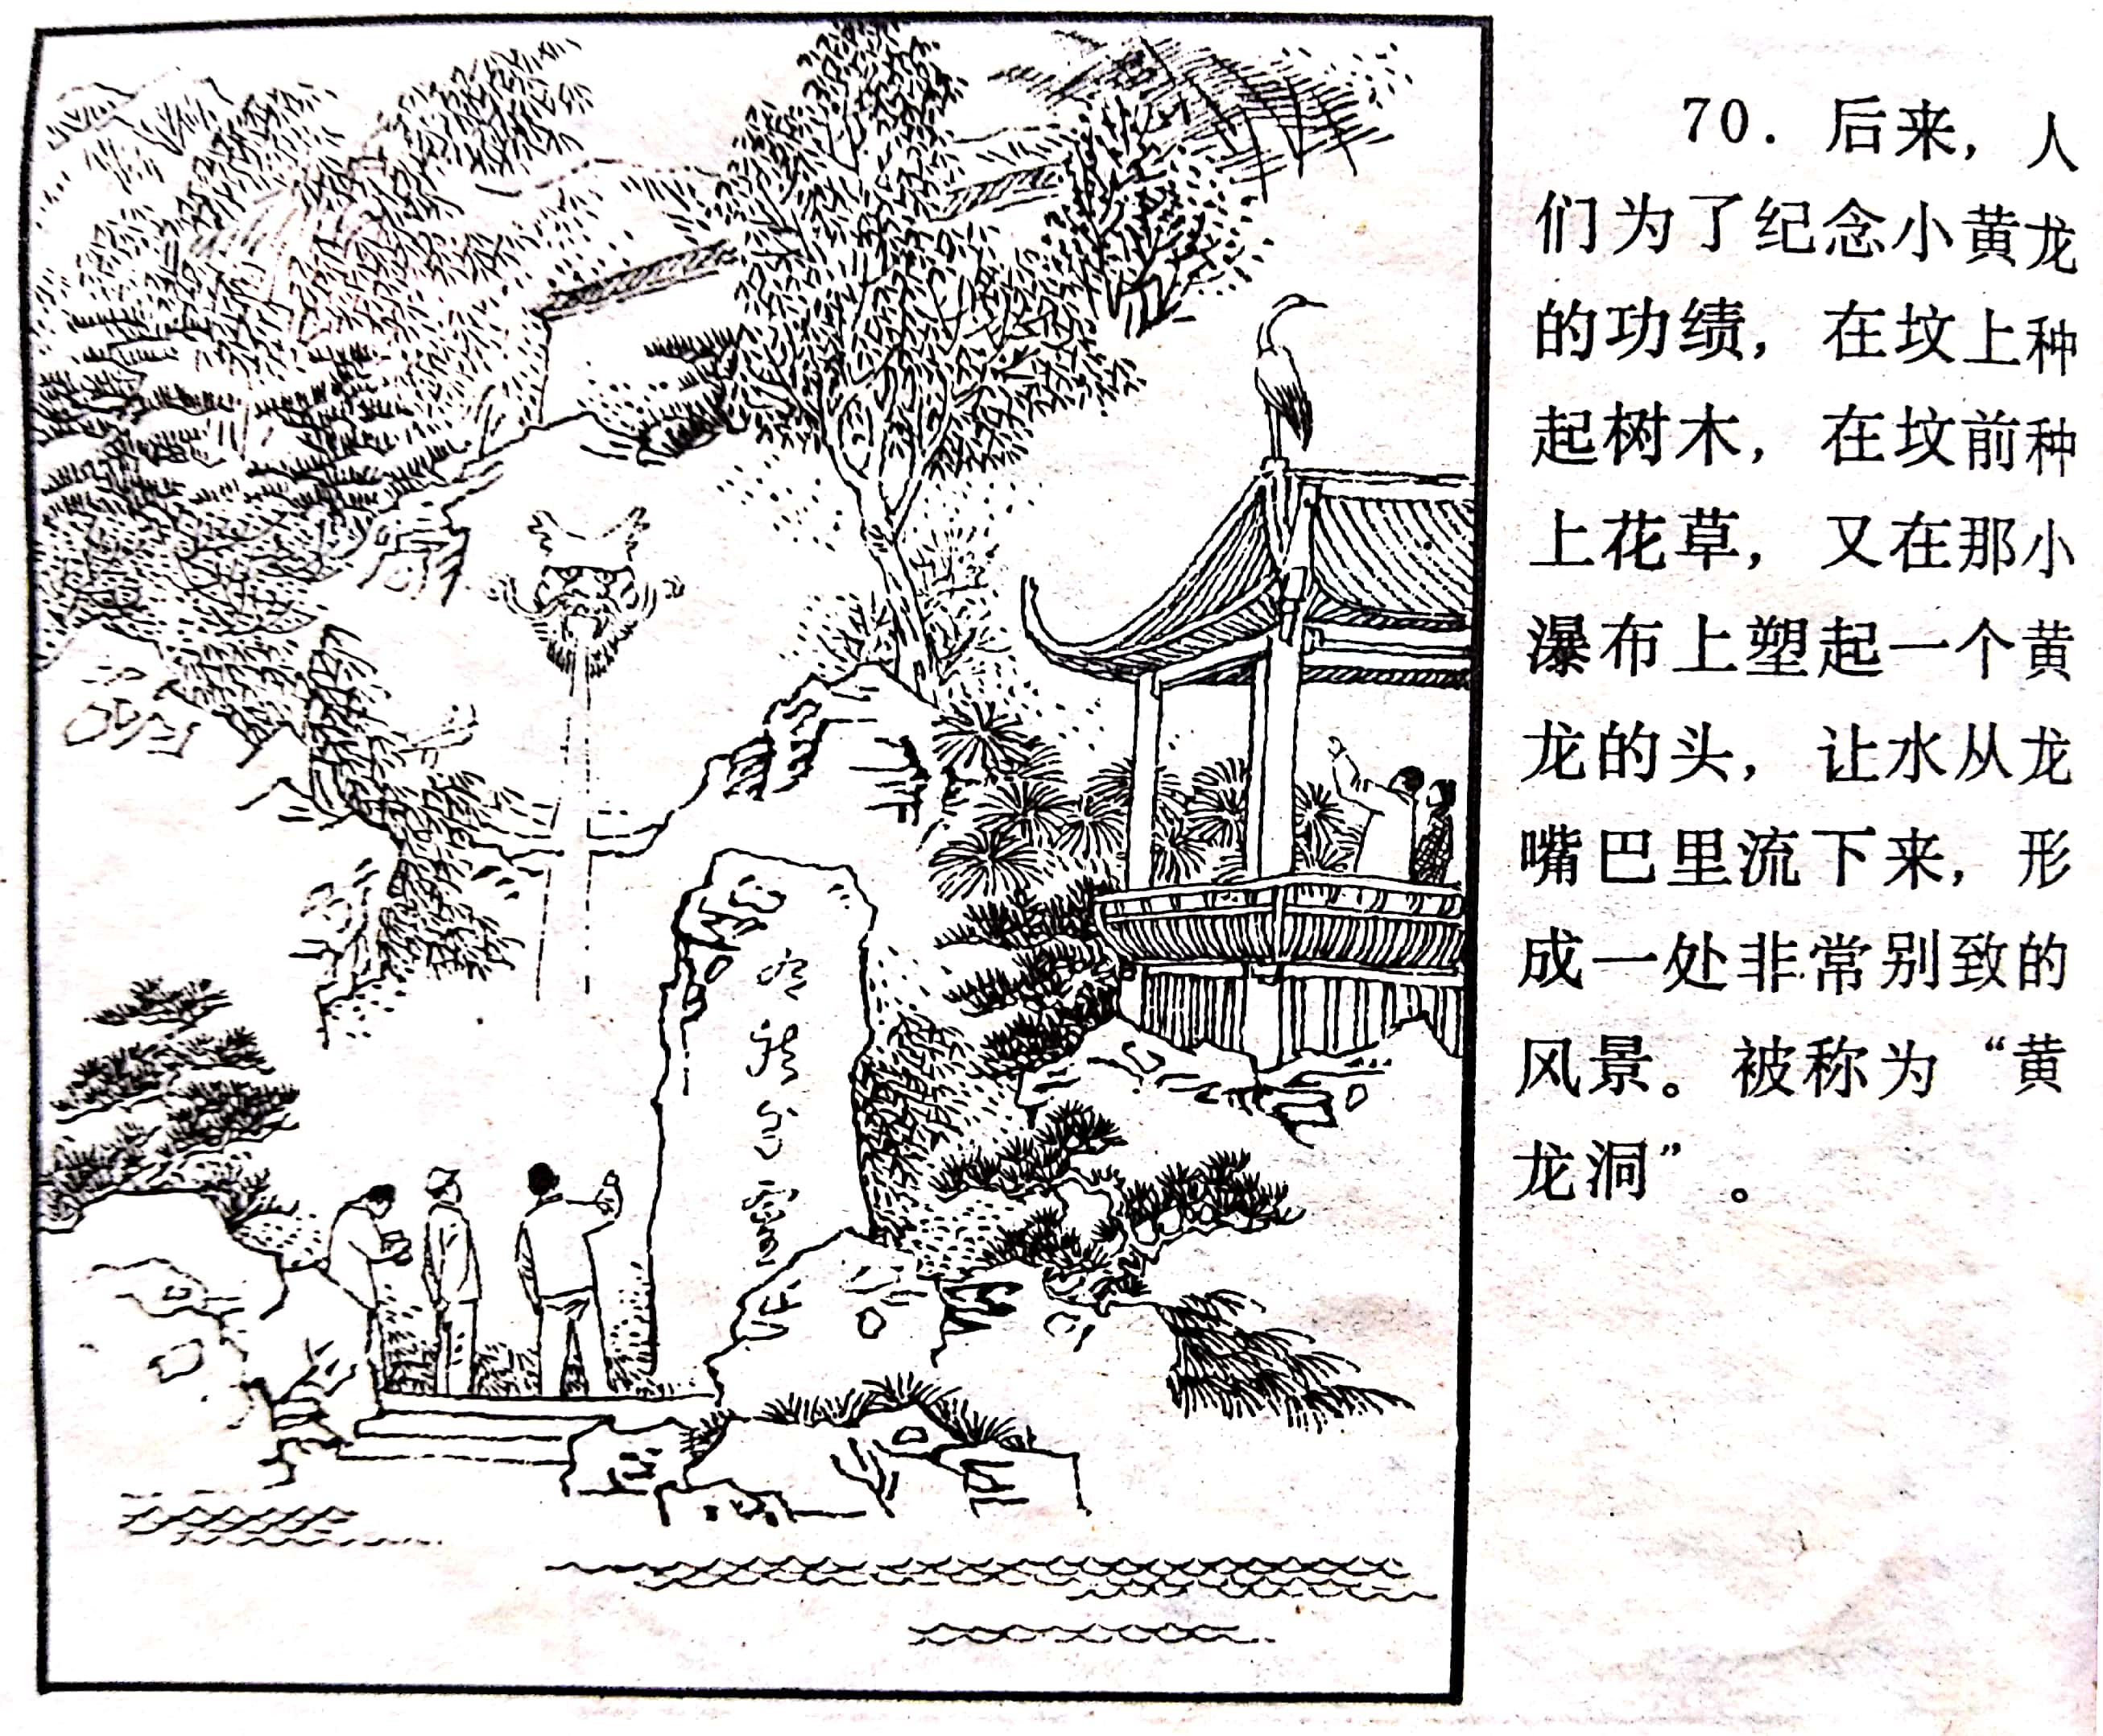 70. 后来，人
们为了纪念小黄龙
的功绩，在坟上种
起树木，在坟前种
上花草，又在那小
瀑布上塑起一个黄
龙的头，让水从龙
嘴巴里流下来，形
成一处非常别致的
风景。被称为“黄
龙洞”。